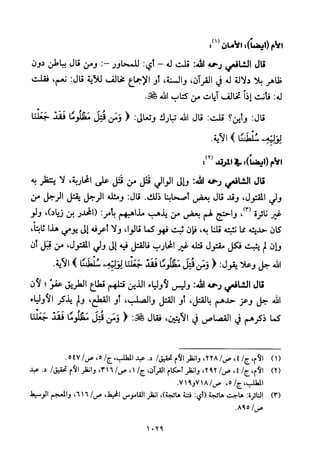 الأم (أيضاً)، الأمان (١) :
قال الشافعي رحمه الله: قلت له - أي: للمحاور -: ومن قال بباطن دون
ظاهر بلا دلالة له في القرآن، والسنة، أو الإجماع مخالف للآية قال: نعم، فقلت
له: فأنت إذاً تخالف آيات من كتاب الله ﷻ.
قال: وأين؟ قلت: قال الله تبارك وتعالى: ﴿ وَمَن قُتِلَ مَظْلُومًا فَقَدْ جَعَلْنَا
لِوَلِيِّهِۦ سُلْطَـٰنًا ﴾ الآية.
الأم (أيضاً)، في المرتد (٢) :
قال الشافعي رحمه الله: وإلى الوالي قتل من قتل على المحاربة، لا ينتظر به
ولي المقتول، وقد قال بعض أصحابنا ذلك. قال: ومثله الرجل يقتل الرجل من
غير نائرة (٣)، واحتج لهم بعض من يذهب مذاهبهم بأمر: (المحدر بن زياد)، ولو
كان حديثه مما نثبته قلنا به، فإن ثبت فهو كما قالوا، ولا أعرفه إلى يومي هذا ثابتاً،
وإن لم يثبت فكل مقتول قتله غير المحارب فالقتل فيه إلى ولي المقتول، من قِبَل أن
الله جل وعلا يقول: ﴿ وَمَن قُتِلَ مَظْلُومًا فَقَدْ جَعَلْنَا لِوَلِيِّهِۦ سُلْطَـٰنًا ﴾ الآية.
قال الشافعي رحمه الله: وليس لأولياء الذين قتلهم قطاع الطريق عفوٌ ؛ لأن
الله جل وعز حدهم بالقتل، أو القتل والصلب، أو القطع، ولم يذكر الأولياء
كما ذكرهم في القصاص في الآيتين، فقال ﷻ: ﴿ وَمَن قُتِلَ مَظْلُومًا فَقَدْ جَعَلْنَا
(١) الأم، ج/ ٤، ص/ ٢٢٨، وانظر الأم تحقيق/ د. عبد المطلب، ج/ ٥، ص/ ٥٤٧.
(٢) الأم، ج/ ٤، ص/ ٢٩٢، وانظر أحكام القرآن، ج/ ١، ص/ ٣١٦، وانظر الأم تحقيق/ د. عبد
المطلب، ج/ ٥، ص/ ٧١٨ و٧١٩.
(٣) النائرة: هاجت هائجة (أي: فتنة هائجة)، انظر القاموس المحيط، ص/ ٦١٦، والمعجم الوسيط
ص/ ٨٩٥.
١٠٢٩